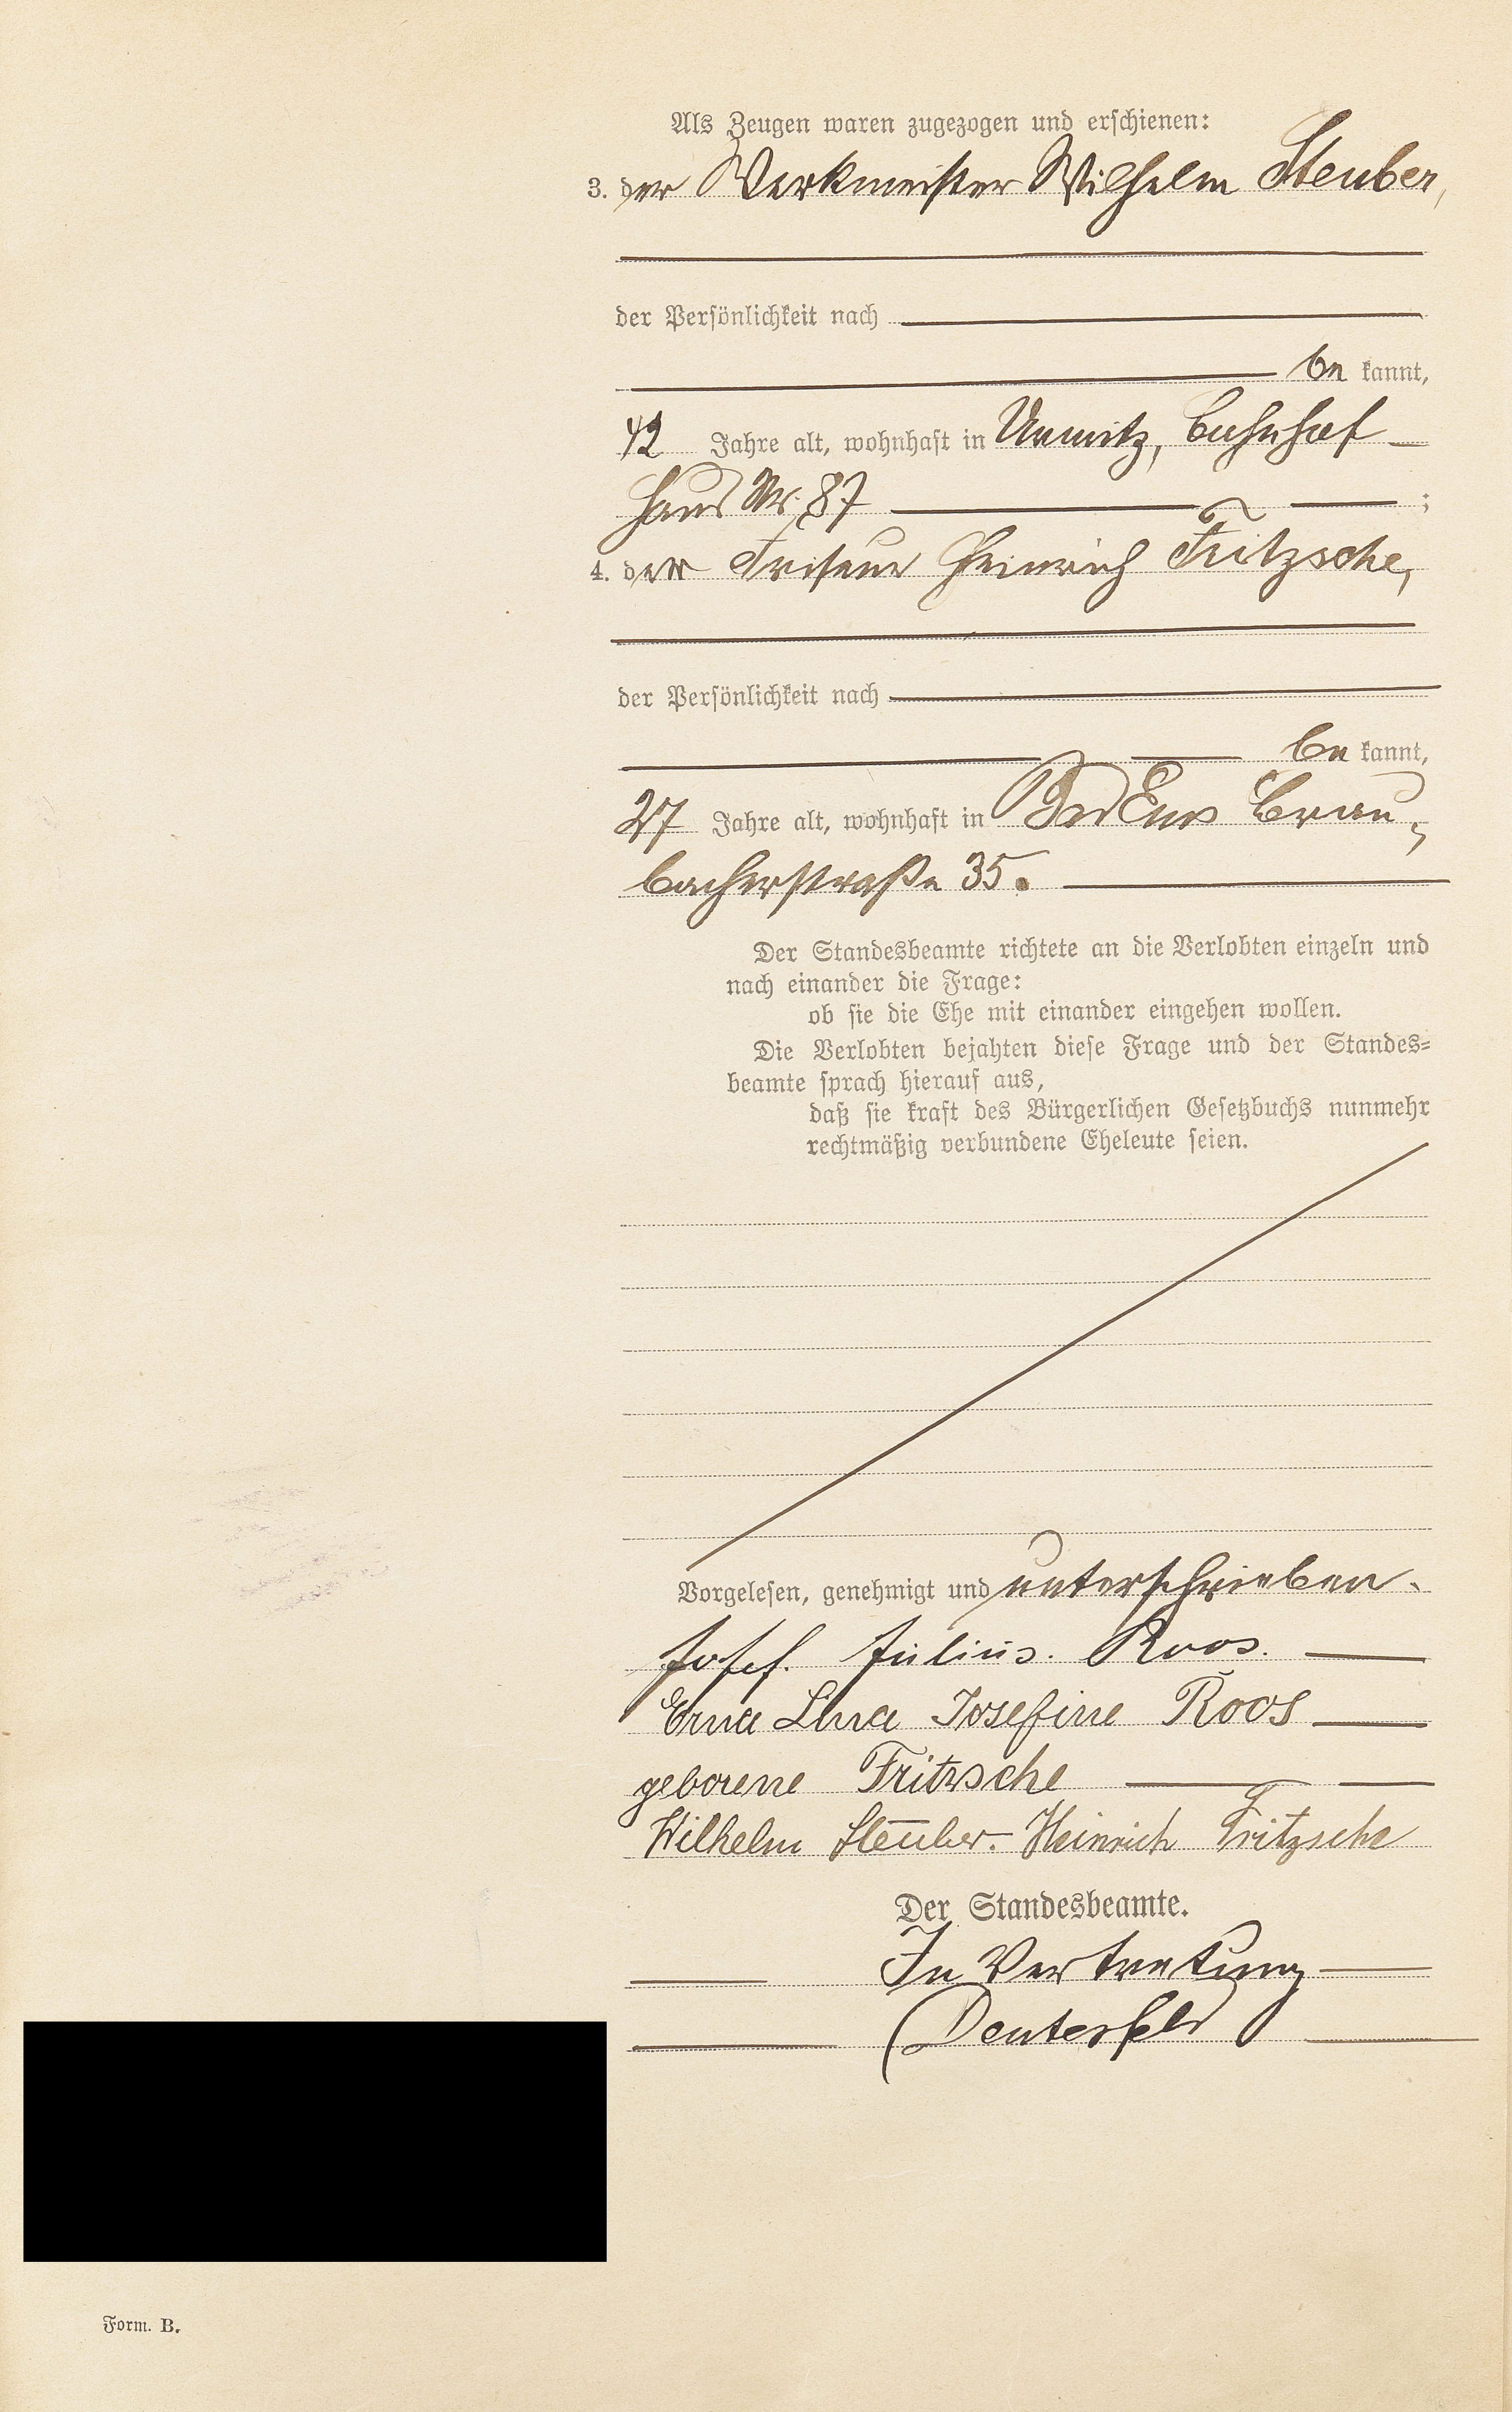 Als Zeugen waren zugezogen und erschienen:
3. der Werkmeister Wilhelm Steuber,
der Persönlichkeit nach
be kannt,
42 Jahre alt, wohnhaft in Urmitz, Bahnhof
Haus Nr. 87 ;
4. der Friseur Heinrich Fritzsche,
der Persönlichkeit nach
be kannt,
27 Jahre alt, wohnhaft in Bad Ems Brau-
bacherstraße 35.
Der Standesbeamte richtete an die Verlobten einzeln und
nach einander die Frage:
ob sie die Ehe mit einander eingehen wollen.
Die Verlobten bejahten diese Frage und der Standes-
beamte sprach hierauf aus,
daß sie kraft des Bürgerlichen Gesetzbuchs nunmehr
rechtmäßig verbundene Eheleute seien.
Vorgelesen, genehmigt und unterschrieben.
Josef. Julius. Roos.
Erna Lina Josefine Roos
geborene Fritzsche
Wilhelm Steuber. Heinrich Fritzsche
Der Standesbeamte.
In Vertretung
Deuterfeld
Form. B.